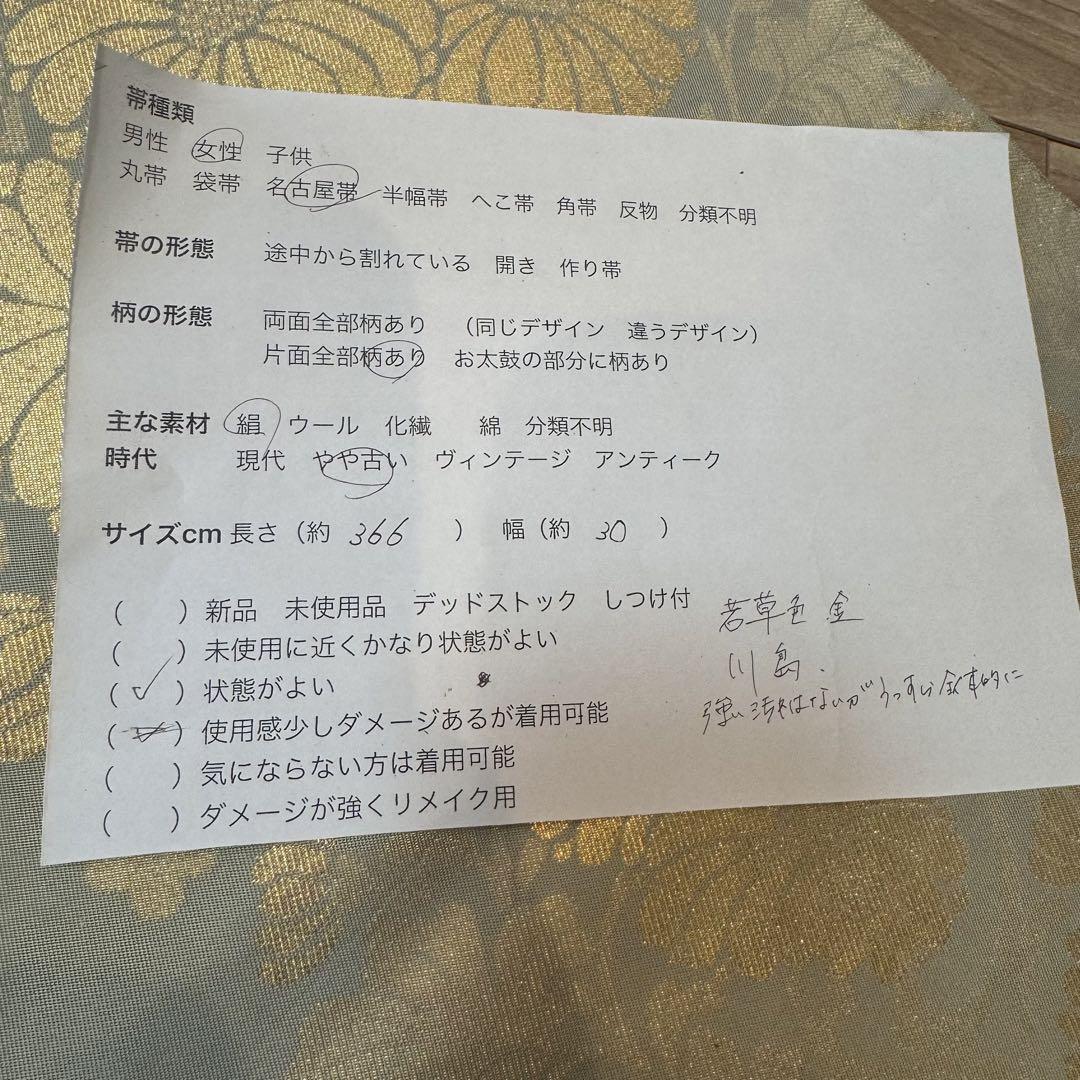 帯種類
男性 女性 子供
丸帯 袋帯 名古屋帯 半幅帯 へこ帯 角帯 反物 分類不明
帯の形態 途中から割れている 開き 作り帯
柄の形態 両面全部柄あり (同じデザイン 違うデザイン)
片面全部柄あり お太鼓の部分に柄あり
主な素材 絹 ウール 化繊 綿 分類不明
時代 現代 やや古い ヴィンテージ アンティーク
サイズcm 長さ(約 366 ) 幅(約 30 )
( )新品 未使用品 デッドストック しつけ付
( )未使用に近くかなり状態がよい
(✓)状態がよい
( )使用感少しダメージあるが着用可能
( )気にならない方は着用可能
( )ダメージが強くリメイク用
若草色 金
川島.
強い汚れはないがうっすら全体的に